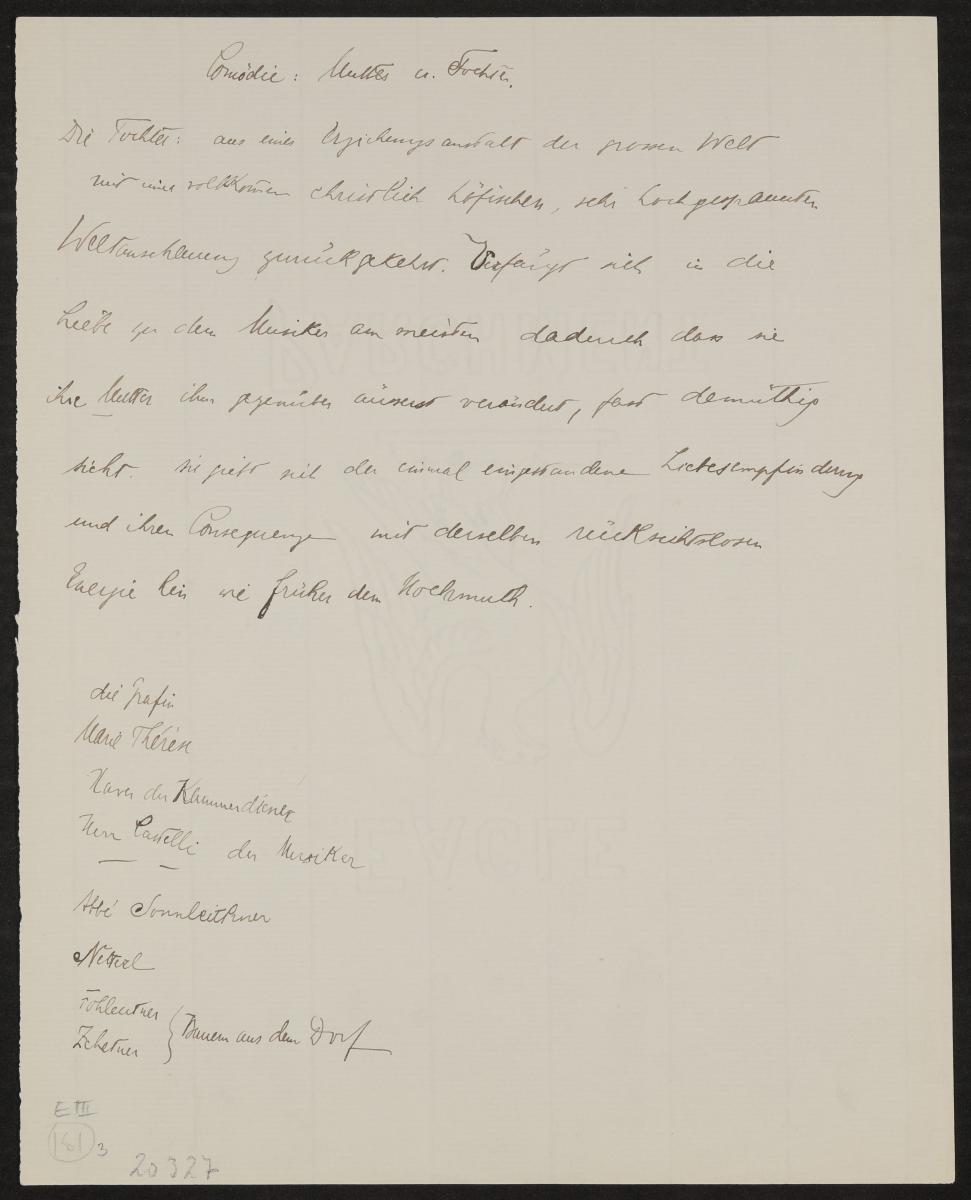 Comödie: Mutter u. Tochter.
Die Tochter: aus einer Erziehungsanstalt der grossen Welt
mit einer vollkommen christlich höfischen, sehr hochgespannten
Weltanschauung zurückgekehrt. Verfängt sich in die
Liebe zu dem Musiker am meisten dadurch dass sie
ihre Mutter ihm gegenüber äusserst verändert, fast demüthig
sieht. sie giebt sich der einmal eingestandenen Liebesempfindung
und ihren Consequenzen mit derselben rücksichtslosen
Energie hin wie früher dem Hochmuth.
die Gräfin
Marie Thérèse
Xaver der Kammerdiener
Herr Castelli der Musiker
Abbé Sonnleithner
Netterl
Zehetner } Bauern aus dem Dorf
E III
181 3
20327
BADISCHE
EAGLE